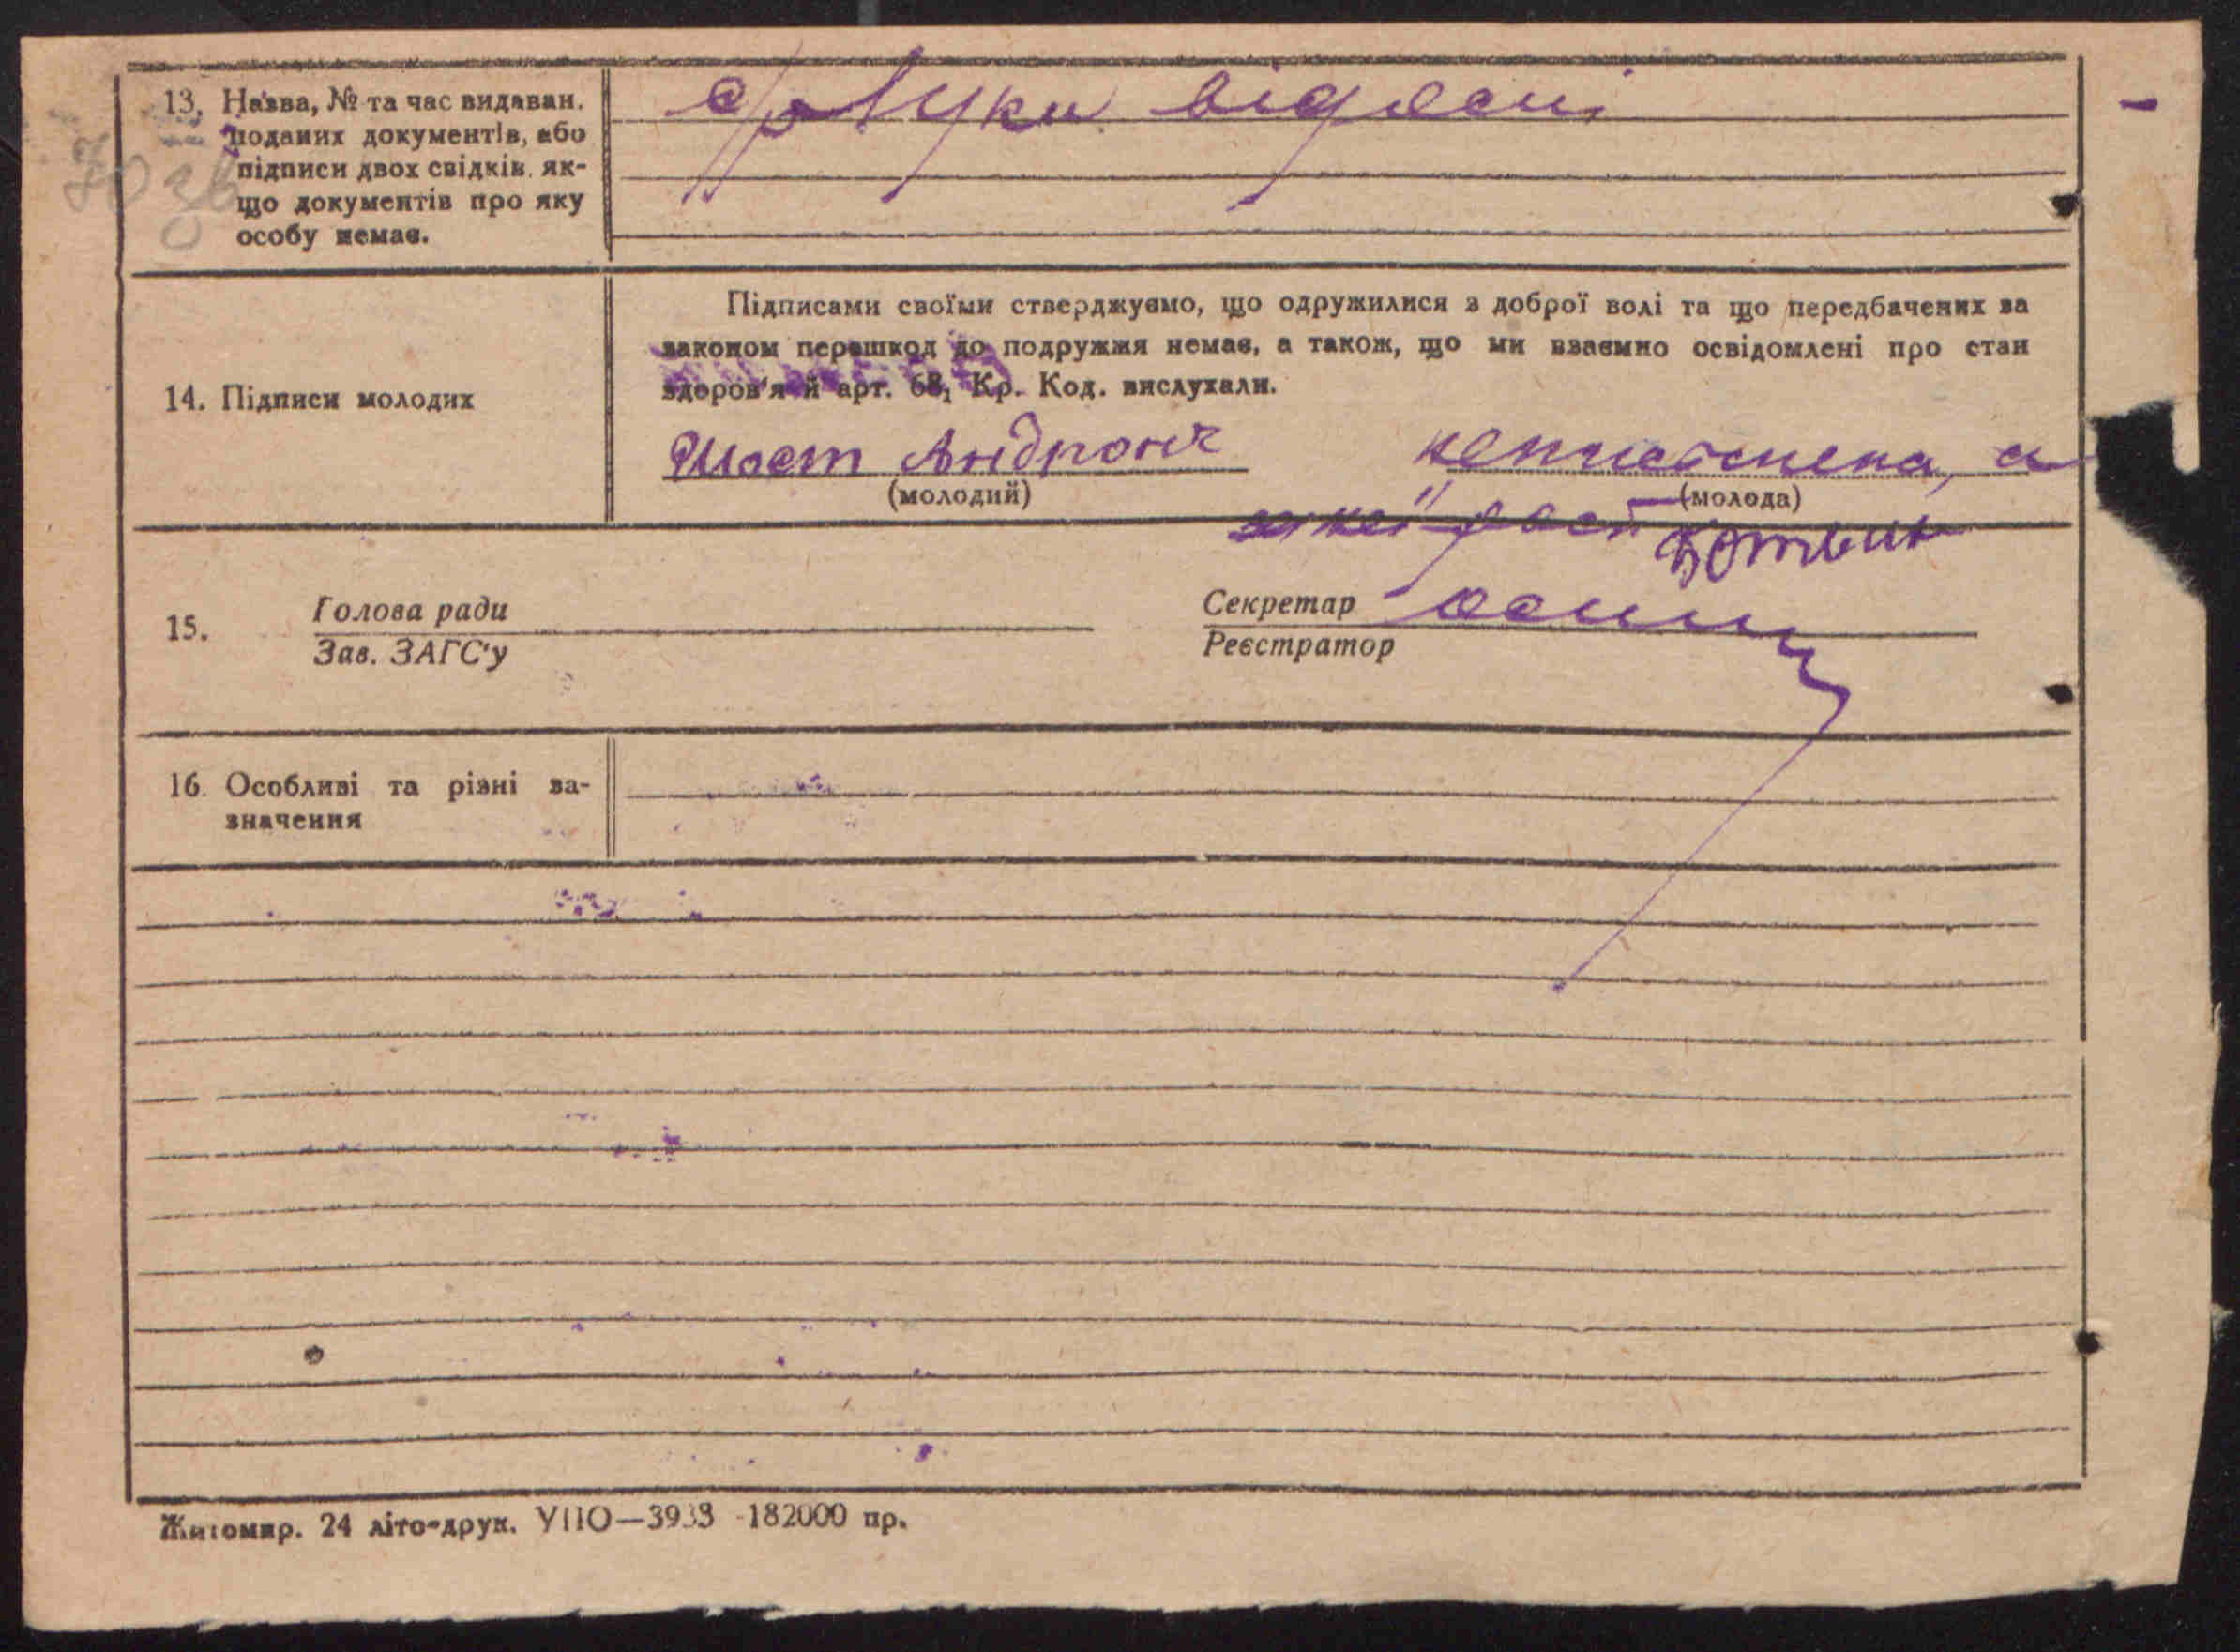 13. Назва, № та час видаван.
поданих документів, або
підписи двох свідків, як-
що документів про яку
особу немає.
с/р
14. Підписи молодих
Підписами своїми стверджуємо, що одружилися з доброї волі та що передбачених за
законом перешкод до подружжя немає, а також, що ми взаємно освідомлені про стан
здоров'я й арт. 68, Кр. Код. вислухали.
Шост Андрон
неписьменна, а
(молодий)
(молода)
за неї
15.
Голова ради
Зав. ЗАГС'у
Секретар
Реєстратор
16. Особливі та різні за-
значення
Житомир. 24 літо-друк. УПО—3933 -182000 пр.